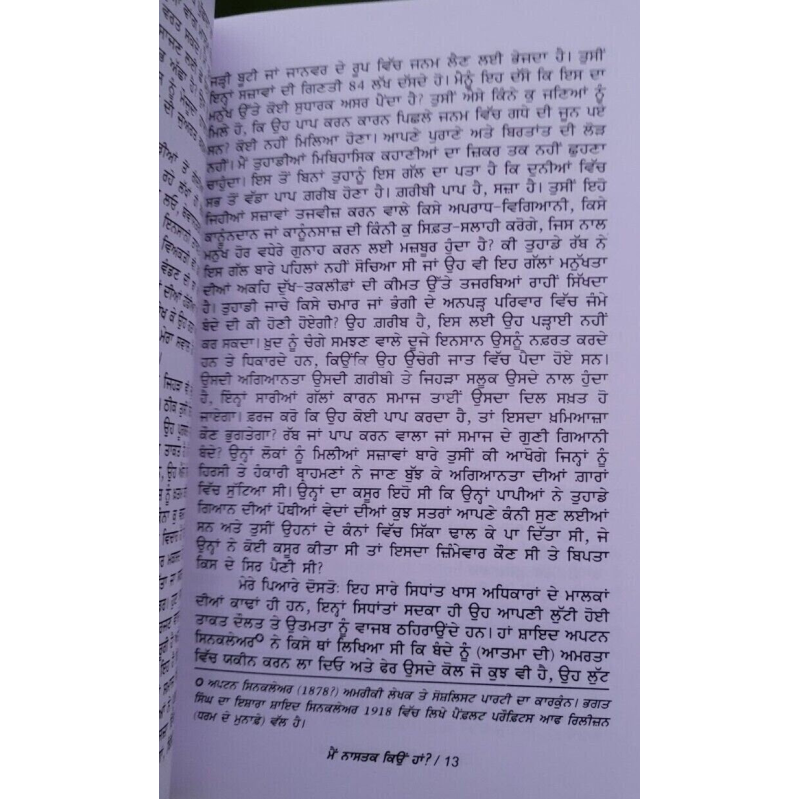 ਜੜ੍ਹੀ ਬੂਟੀ ਜਾਂ ਜਾਨਵਰ ਦੇ ਰੂਪ ਵਿੱਚ ਜਨਮ ਲੈਣ ਲਈ ਭੇਜਦਾ ਹੈ। ਤੁਸੀਂ
ਇਨ੍ਹਾਂ ਸਜ਼ਾਵਾਂ ਦੀ ਗਿਣਤੀ 84 ਲੱਖ ਦੱਸਦੇ ਹੋ। ਮੈਨੂੰ ਇਹ ਦੱਸੋ ਕਿ ਇਸ ਦਾ
ਮਨੁੱਖ ਉੱਤੇ ਕੋਈ ਸੁਧਾਰਕ ਅਸਰ ਪੈਂਦਾ ਹੈ? ਤੁਸੀਂ ਐਸੇ ਕਿੰਨੇ ਕੁ ਜਣਿਆਂ ਨੂੰ
ਮਿਲੇ ਹੋ, ਕਿ ਉਹ ਪਾਪ ਕਰਨ ਕਾਰਨ ਪਿਛਲੇ ਜਨਮ ਵਿੱਚ ਗਧੇ ਦੀ ਜੂਨ ਪਏ
ਸਨ? ਕੋਈ ਨਹੀਂ ਮਿਲਿਆ ਹੋਣਾ। ਆਪਣੇ ਪੁਰਾਣੇ ਅਤੇ ਬਿਰਤਾਂਤ ਦੀ ਲੋੜ
ਨਹੀਂ। ਮੈਂ ਤੁਹਾਡੀਆਂ ਮਿਥਿਹਾਸਿਕ ਕਹਾਣੀਆਂ ਦਾ ਜ਼ਿਕਰ ਤਕ ਨਹੀਂ ਛੂਹਣਾ
ਚਾਹੁੰਦਾ। ਇਸ ਤੋਂ ਬਿਨਾਂ ਤੁਹਾਨੂੰ ਇਸ ਗੱਲ ਦਾ ਪਤਾ ਹੈ ਕਿ ਦੁਨੀਆਂ ਵਿੱਚ
ਸਭ ਤੋਂ ਵੱਡਾ ਪਾਪ ਗ਼ਰੀਬ ਹੋਣਾ ਹੈ। ਗ਼ਰੀਬੀ ਪਾਪ ਹੈ, ਸਜ਼ਾ ਹੈ। ਤੁਸੀਂ ਇਹੋ
ਜਿਹੀਆਂ ਸਜ਼ਾਵਾਂ ਤਜਵੀਜ਼ ਕਰਨ ਵਾਲੇ ਕਿਸੇ ਅਪਰਾਧ-ਵਿਗਿਆਨੀ, ਕਿਸੇ
ਕਾਨੂੰਨਦਾਨ ਜਾਂ ਕਾਨੂੰਨਸਾਜ਼ ਦੀ ਕਿੰਨੀ ਕੁ ਸਿਫ਼ਤ-ਸਲਾਹੀ ਕਰੋਗੇ, ਜਿਸ ਨਾਲ
ਮਨੁੱਖ ਹੋਰ ਵਧੇਰੇ ਗੁਨਾਹ ਕਰਨ ਲਈ ਮਜ਼ਬੂਰ ਹੁੰਦਾ ਹੈ? ਕੀ ਤੁਹਾਡੇ ਰੱਬ ਨੇ
ਇਸ ਗੱਲ ਬਾਰੇ ਪਹਿਲਾਂ ਨਹੀਂ ਸੋਚਿਆ ਸੀ ਜਾਂ ਉਹ ਵੀ ਇਹ ਗੱਲਾਂ ਮਨੁੱਖਤਾ
ਦੀਆਂ ਅਕਹਿ ਦੁੱਖ-ਤਕਲੀਫ਼ਾਂ ਦੀ ਕੀਮਤ ਉੱਤੇ ਤਜਰਬਿਆਂ ਰਾਹੀਂ ਸਿੱਖਦਾ
ਹੈ। ਤੁਹਾਡੀ ਜਾਚੇ ਕਿਸੇ ਚਮਾਰ ਜਾਂ ਭੰਗੀ ਦੇ ਅਨਪੜ੍ਹ ਪਰਿਵਾਰ ਵਿੱਚ ਜੰਮੇ
ਬੰਦੇ ਦੀ ਕੀ ਹੋਣੀ ਹੋਏਗੀ? ਉਹ ਗ਼ਰੀਬ ਹੈ, ਇਸ ਲਈ ਉਹ ਪੜ੍ਹਾਈ ਨਹੀਂ
ਕਰ ਸਕਦਾ। ਖ਼ੁਦ ਨੂੰ ਚੰਗੇ ਸਮਝਣ ਵਾਲੇ ਦੂਜੇ ਇਨਸਾਨ ਉਸਨੂੰ ਨਫ਼ਰਤ ਕਰਦੇ
ਹਨ ਤੇ ਧਿਕਾਰਦੇ ਹਨ, ਕਿਉਂਕਿ ਉਹ ਉਚੇਰੀ ਜਾਤ ਵਿੱਚ ਪੈਦਾ ਹੋਏ ਸਨ।
ਉਸਦੀ ਅਗਿਆਨਤਾ ਉਸਦੀ ਗ਼ਰੀਬੀ ਤੇ ਜਿਹੜਾ ਸਲੂਕ ਉਸਦੇ ਨਾਲ ਹੁੰਦਾ
ਹੈ, ਇਨ੍ਹਾਂ ਸਾਰੀਆਂ ਗੱਲਾਂ ਕਾਰਨ ਸਮਾਜ ਤਾਈਂ ਉਸਦਾ ਦਿਲ ਸਖ਼ਤ ਹੋ
ਜਾਏਗਾ। ਫ਼ਰਜ ਕਰੋ ਕਿ ਉਹ ਕੋਈ ਪਾਪ ਕਰਦਾ ਹੈ, ਤਾਂ ਇਸਦਾ ਖ਼ਮਿਆਜ਼ਾ
ਕੌਣ ਭੁਗਤੇਗਾ? ਰੱਬ ਜਾਂ ਪਾਪ ਕਰਨ ਵਾਲਾ ਜਾਂ ਸਮਾਜ ਦੇ ਗੁਣੀ ਗਿਆਨੀ
ਬੰਦੇ? ਉਨ੍ਹਾਂ ਲੋਕਾਂ ਨੂੰ ਮਿਲੀਆਂ ਸਜ਼ਾਵਾਂ ਬਾਰੇ ਤੁਸੀਂ ਕੀ ਆਖੋਗੇ ਜਿਨ੍ਹਾਂ ਨੂੰ
ਹਿਰਸੀ ਤੇ ਹੰਕਾਰੀ ਬ੍ਰਾਹਮਣਾਂ ਨੇ ਜਾਣ ਬੁੱਝ ਕੇ ਅਗਿਆਨਤਾ ਦੀਆਂ ਗ਼ਾਰਾਂ
ਵਿੱਚ ਸੁੱਟਿਆ ਸੀ। ਉਨ੍ਹਾਂ ਦਾ ਕਸੂਰ ਇਹੋ ਸੀ ਕਿ ਉਨ੍ਹਾਂ ਪਾਪੀਆਂ ਨੇ ਤੁਹਾਡੇ
ਗਿਆਨ ਦੀਆਂ ਪੋਥੀਆਂ ਵੇਦਾਂ ਦੀਆਂ ਕੁਝ ਸਤਰਾਂ ਆਪਣੇ ਕੰਨੀ ਸੁਣ ਲਈਆਂ
ਸਨ ਅਤੇ ਤੁਸੀਂ ਉਹਨਾਂ ਦੇ ਕੰਨਾਂ ਵਿੱਚ ਸਿੱਕਾ ਢਾਲ ਕੇ ਪਾ ਦਿੱਤਾ ਸੀ, ਜੇ
ਉਨ੍ਹਾਂ ਨੇ ਕੋਈ ਕਸੂਰ ਕੀਤਾ ਸੀ ਤਾਂ ਇਸਦਾ ਜ਼ਿੰਮੇਵਾਰ ਕੌਣ ਸੀ ਤੇ ਬਿਪਤਾ
ਕਿਸ ਦੇ ਸਿਰ ਪੈਣੀ ਸੀ?
ਮੇਰੇ ਪਿਆਰੇ ਦੋਸਤੋ: ਇਹ ਸਾਰੇ ਸਿਧਾਂਤ ਖਾਸ ਅਧਿਕਾਰਾਂ ਦੇ ਮਾਲਕਾਂ
ਦੀਆਂ ਕਾਢਾਂ ਹੀ ਹਨ, ਇਨ੍ਹਾਂ ਸਿਧਾਂਤਾਂ ਸਦਕਾ ਹੀ ਉਹ ਆਪਣੀ ਲੁੱਟੀ ਹੋਈ
ਤਾਕਤ ਦੌਲਤ ਤੇ ਉਤਮਤਾ ਨੂੰ ਵਾਜਬ ਠਹਿਰਾਉਂਦੇ ਹਨ। ਹਾਂ ਸ਼ਾਇਦ ਅਪਟਨ
ਸਿਨਕਲੇਅਰ° ਨੇ ਕਿਸੇ ਥਾਂ ਲਿਖਿਆ ਸੀ ਕਿ ਬੰਦੇ ਨੂੰ (ਆਤਮਾ ਦੀ) ਅਮਰਤਾ
ਵਿੱਚ ਯਕੀਨ ਕਰਨ ਲਾ ਦਿਓ ਅਤੇ ਫੇਰ ਉਸਦੇ ਕੋਲ ਜੋ ਕੁਝ ਵੀ ਹੈ, ਉਹ ਲੁੱਟ
° ਅਪਟਨ ਸਿਨਕਲੇਅਰ (1878?) ਅਮਰੀਕੀ ਲੇਖਕ ਤੇ ਸੋਸ਼ਲਿਸਟ ਪਾਰਟੀ ਦਾ ਕਾਰਕੁੰਨ। ਭਗਤ
ਸਿੰਘ ਦਾ ਇਸ਼ਾਰਾ ਸ਼ਾਇਦ ਸਿਨਕਲੇਅਰ 1918 ਵਿੱਚ ਲਿਖੇ ਪੈਂਫ਼ਲਟ ਪਰੌਫ਼ਿਟਸ ਆਫ ਰਿਲੀਜ਼ਨ
(ਧਰਮ ਦੇ ਮੁਨਾਫ਼ੇ) ਵੱਲ ਹੈ।
ਮੈਂ ਨਾਸਤਕ ਕਿਉਂ ਹਾਂ? / 13